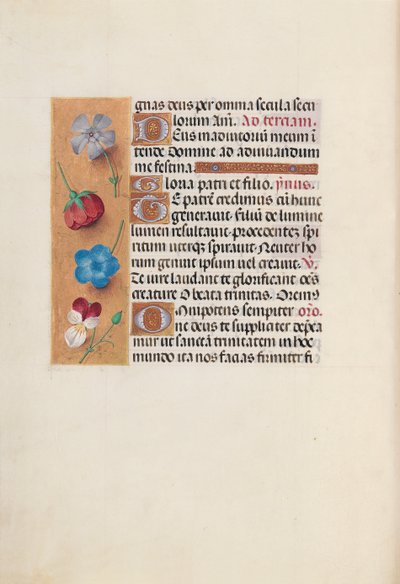 gnas deus per omnia secula secu
lorum Am̄. Ad terciam.
Deus in adiutoriū meum ī
tende Domine ad adiuuandum
me festina.
Gloria patri et filio. ymus.
Te patrē credimus cū hunc
generauit filiū de lumine
lumen resultant procedentez spi
ritum uterqz spirauit. Neuter ho
rum genuit ipsum uel creauit. V.
Te iure laudant te glorificant oēs
creature O beata trinitas. Orem9
Omnipotens sempiter oro.
ne deus te suppliciter depca
mur ut sanctā trinitatem in hoc
mundo ita nos facias firmiter fi